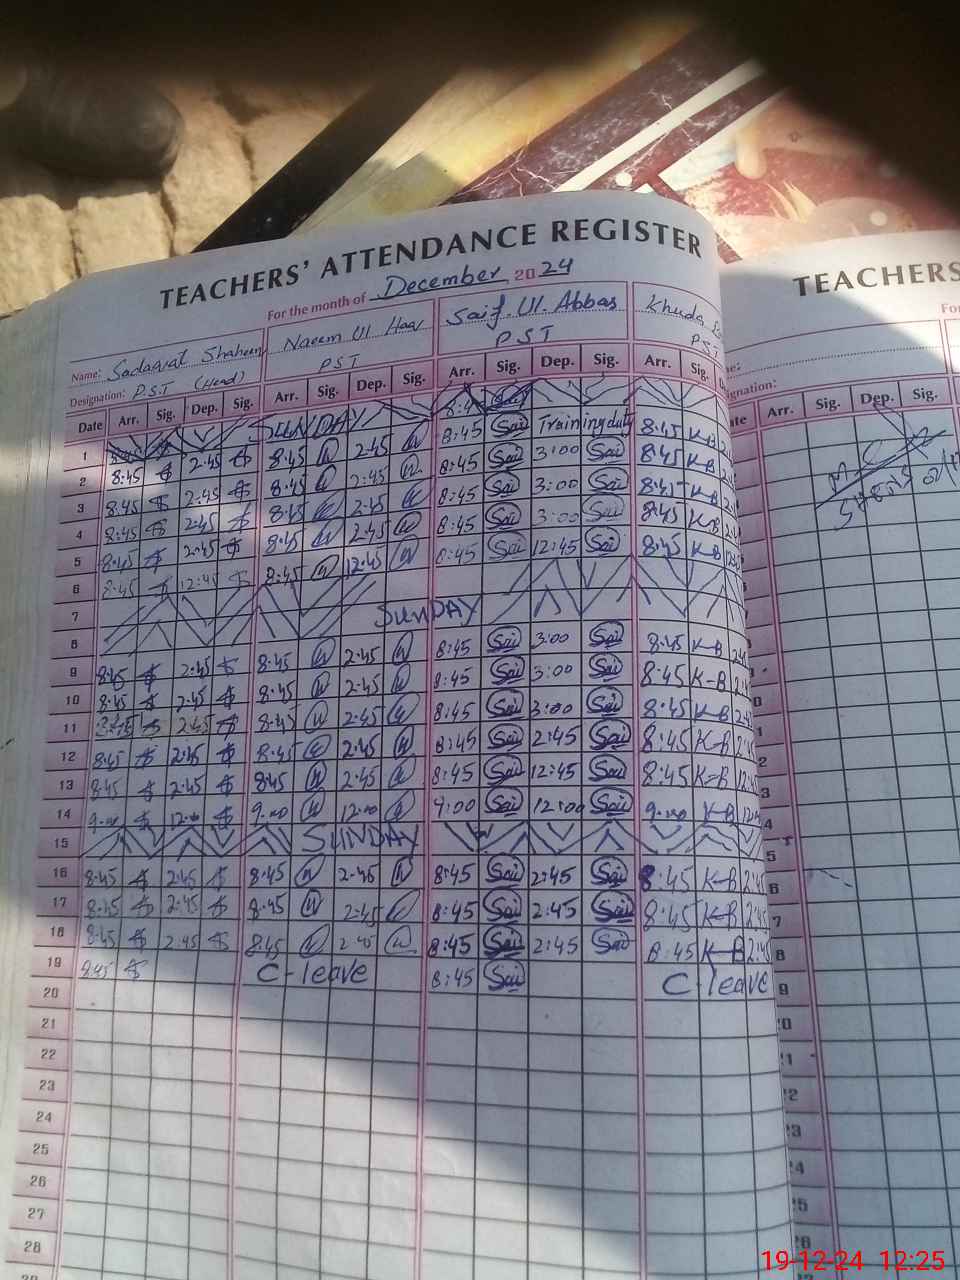 TEACHERS' ATTENDANCE REGISTER
TEACHERS
For the month of December 2024
Name: Sadaqat Shaheen Naeem Ul Haq Saif. Ul. Abbas Khuda
Designation: P.S.T (Head) PST PST PST
Date Arr. Sig. Dep. Sig. Arr. Sig. Dep. Sig. Arr. Sig. Dep. Sig. Arr. Sig.
Arr. Sig. Dep. Sig.
1 SUNDAY
2 8:45 2:45 8:45 2:45 8:45 Sai Training duty 8:45 K-B
3 8:45 2:45 8:45 2:45 8:45 Sai 3:00 Sai 8:45 K-B
4 8:45 2:45 8:45 2:45 8:45 Sai 3:00 Sai 8:45 K-B
5 8:45 2:45 8:45 2:45 8:45 Sai 3:00 Sai 8:45 K-B
6 8:45 12:45 8:45 12:45 8:45 Sai 12:45 Sai 8:45 K-B
7
8 SUNDAY
9 8:45 2:45 8:45 2:45 8:45 Sai 3:00 Sai 8:45 K-B
10 8:45 2:45 8:45 2:45 8:45 Sai 3:00 Sai 8:45 K-B
11 8:45 2:45 8:45 2:45 8:45 Sai 3:00 Sai 8:45 K-B
12 8:45 2:45 8:45 2:45 8:45 Sai 2:45 Sai 8:45 K-B 2:45
13 8:45 2:45 8:45 2:45 8:45 Sai 12:45 Sai 8:45 K-B 12:45
14 9:00 12:00 9:00 12:00 9:00 Sai 12:00 Sai 9:00 K-B 12:00
15 SUNDAY
16 8:45 2:45 8:45 2:45 8:45 Sai 2:45 Sai 8:45 K-B 2:45
17 8:45 2:45 8:45 2:45 8:45 Sai 2:45 Sai 8:45 K-B 2:45
18 8:45 2:45 8:45 2:45 8:45 Sai 2:45 Sai 8:45 K-B 2:45
19 8:45 C-leave 8:45 Sai C-leave
20
21
22
23
24
25
26
27
28
19-12-24 12:25